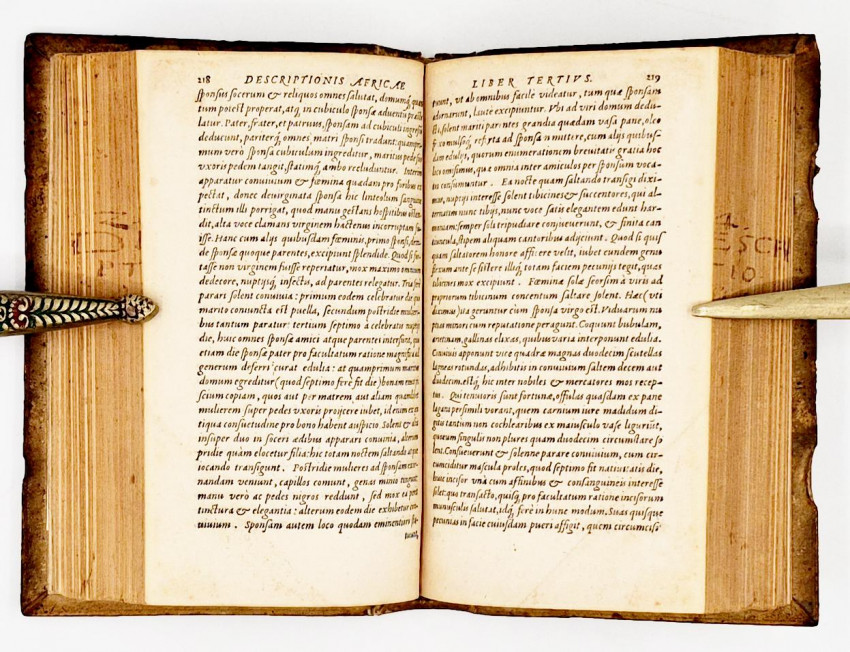 218 DESCRIPTIONIS AFRICAE
sponsus socerum & reliquos omnes salutat, domumq́; quan
tum potest properat, atq; in cubiculo sponsae aduentū
latur. Pater, frater, et patruus, sponsam ad cubiculi
deducunt, pariterq́; omnes matri sponsi tradunt:
mum verò sponsa cubiculum ingreditur, maritus pede
vxoris pedem tangit, statimq́; ambo recluduntur. Interea
apparatur conuiuium & fœmina quaedam pro foribus
pectat, donec deuirginata sponsa hic linteolum
tinctum illi porrigat, quod manu gestans hospitibus
dit, alta voce clamans virginem hactenus incorruptam
isse. Hanc cum alijs quibusdam fœminis, primo sponsi,
de sponsae quoque parentes, excipiunt splendide. Quod si
tasse non virginem fuisse reperiatur, mox maximo omnium
dedecore, nuptijsq́; infectis, ad parentes relegatur. Tria
parari solent conuiuia: primum eodem celebratur die quo
marito coniuncta est puella, secundum postridie
bus tantum paratur: tertium septimo à celebratis nuptijs
die, huic omnes sponsae amici atque parentes intersunt,
etiam die sponsae pater pro facultatum ratione
generum deferri curat edulia: at quamprimum maritus
domum egreditur (quod septimo ferè fit die)
scium copiam, quos aut per matrem, aut aliam quandam
mulierem super pedes vxoris proijcere iubet, idem
tiqua consuetudine pro bono habent auspicio. Solent &
insuper duo in soceri aedibus apparari conuiuia, alterum
pridie quàm elocetur filia: hic totam noctem saltando
iocando transigunt. Postridie mulieres ad sponsam
nandam veniunt, capillos comunt, genas minio
manu verò ac pedes nigros reddunt, sed mox ea
tinctura & elegantia: alterum eodem die exhibetur
uiuium. Sponsam autem loco quodam eminentiori
LIBER TERTIVS. 219
tuunt, vt ab omnibus facile videatur, tum quae sponsam
adornarunt, lautè excipiuntur. Vbi ad viri domum dedu-
cti, solent mariti parentes grandia quaedam vasa pane, oleo
referta ad sponsam mittere, cum alijs quibus-
dam edulijs, quorum enumerationem breuitatis gratia hoc
loco omisimus, quae omnia inter amiculos per sponsum voca-
tos consumuntur. Ea nocte quam saltando transigi dixi-
mus, nuptijs interesse solent tibicines & succentores, qui al-
ternatim nunc tibijs, nunc voce satis elegantem edunt har-
moniam: semper soli tripudiare consueuerunt, & finita can
tiuncula, stipem aliquam cantoribus adijciunt. Quod si quis
quam saltatorem honore afficere velit, iubet eundem genu
flexum ante se sistere illiq́; totam faciem pecunijs tegit, quas
tibicines mox excipiunt. Fœminae solae seorsim à viris ad
propriorum tibicinum concentum saltare solent. Haec (vti
diximus) ita geruntur cùm sponsa virgo est. Viduarum nu
ptias minori cum reputatione peragunt. Coquunt bubulam,
veruecinam, gallinas elixas, quibus varia interponunt edulia.
Conuiuis apponunt vice quadrae magnas duodecim scutellas
ligneas rotundas, adhibitis in conuiuium saltem decem aut
duodecim. estq́; hic inter nobiles & mercatores mos recep-
tus. Qui tenuioris sunt fortunae, offulas quasdam ex pane
lagani persimili vorant, quem carnium iure madidum di-
gitis tantum non cochlearibus ex maiusculo vase liguriūt,
quorum singulis non plures quam duodecim circumstare so
lent. Consueuerunt & solenne parare conuiuium, cum cir-
cumciditur mascula proles, quod septimo fit natiuitatis die,
huic incisor vnà cum affinibus & consanguineis interesse
solet: quo transacto, quisq; pro facultatum ratione incisorum
munusculis salutat, idq́; ferè in hunc modum. Suas quisque
pecunias in facie cuiusdam pueri affigit, quem circumcisor